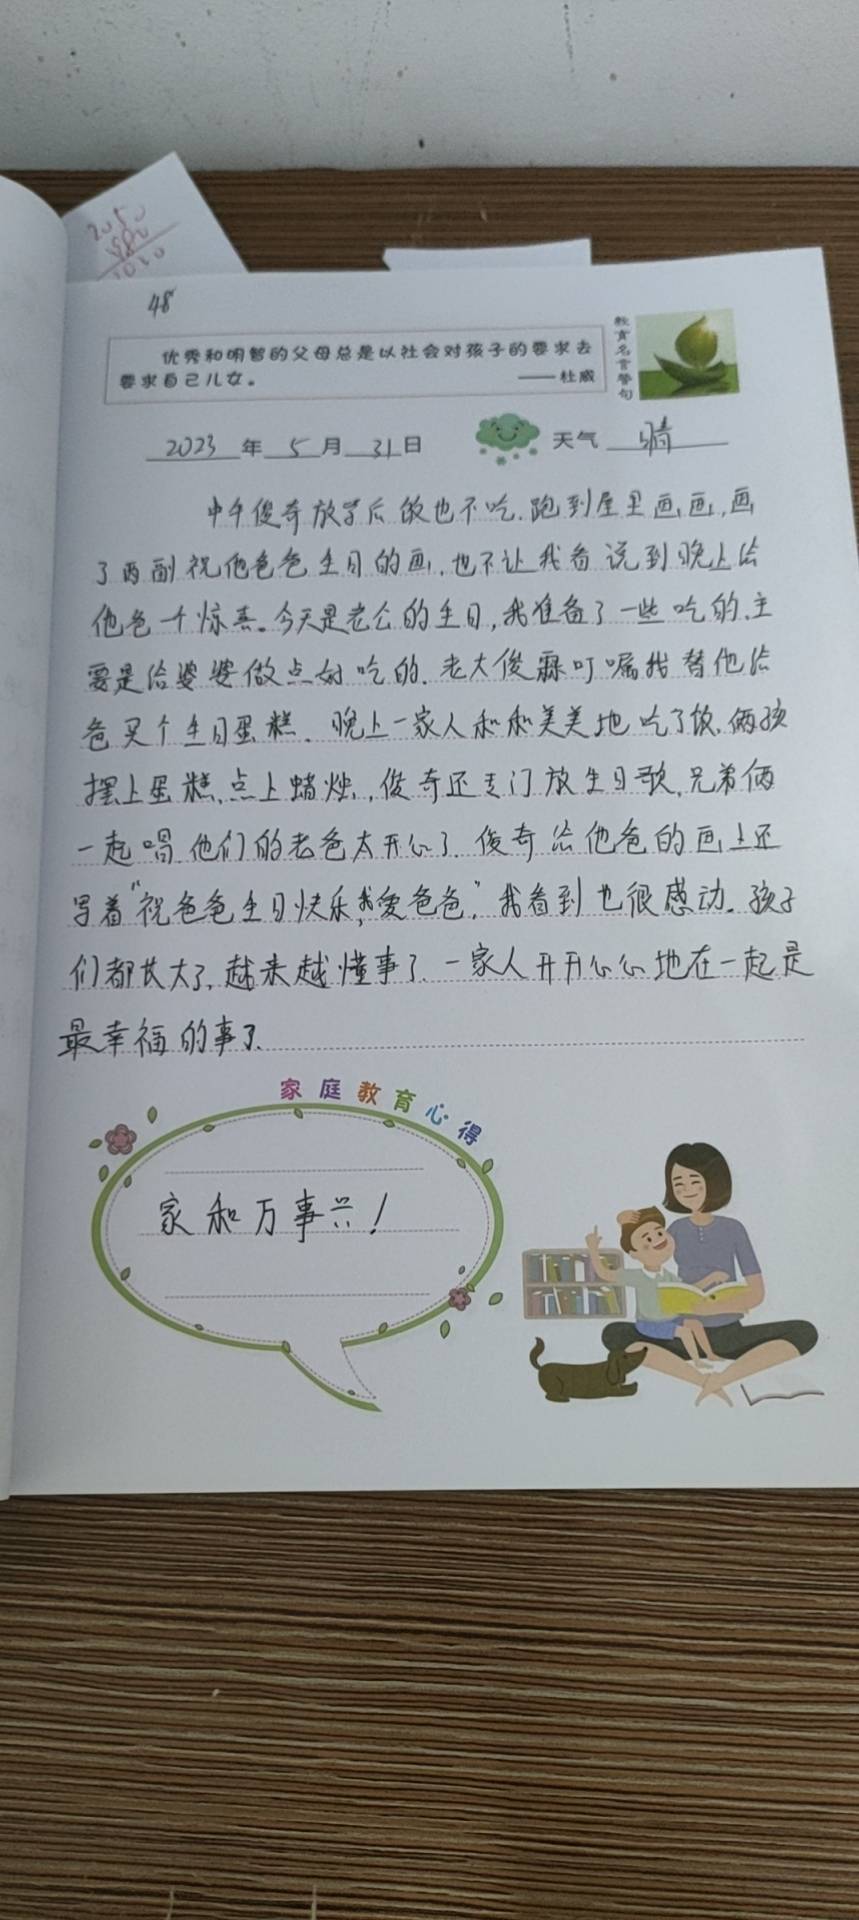 2050
48
优秀和明智的父母总是以社会对孩子的要求去
要求自己儿女。 ——杜威
教育名言警句
2023年5月31日 天气 晴
中午俊奇放学后饭也不吃.跑到屋里画画,画
了两副祝他爸爸生日的画,也不让我看说到晚上给
他爸一个惊喜。今天是老公的生日,我准备了一些吃的,主
要是给婆婆做点好吃的.老大俊霖叮嘱我替他给
爸买个生日蛋糕.晚上一家人和和美美地吃了饭,俩孩
摆上蛋糕,点上蜡烛,俊奇还专门放生日歌,兄弟俩
一起唱他们的老爸太开心了.俊奇给他爸的画上还
写着“祝爸爸生日快乐,我爱爸爸,”我看到也很感动.孩子
们都长大了,越来越懂事了.一家人开开心心地在一起是
最幸福的事了.
家庭教育心得
家和万事兴!